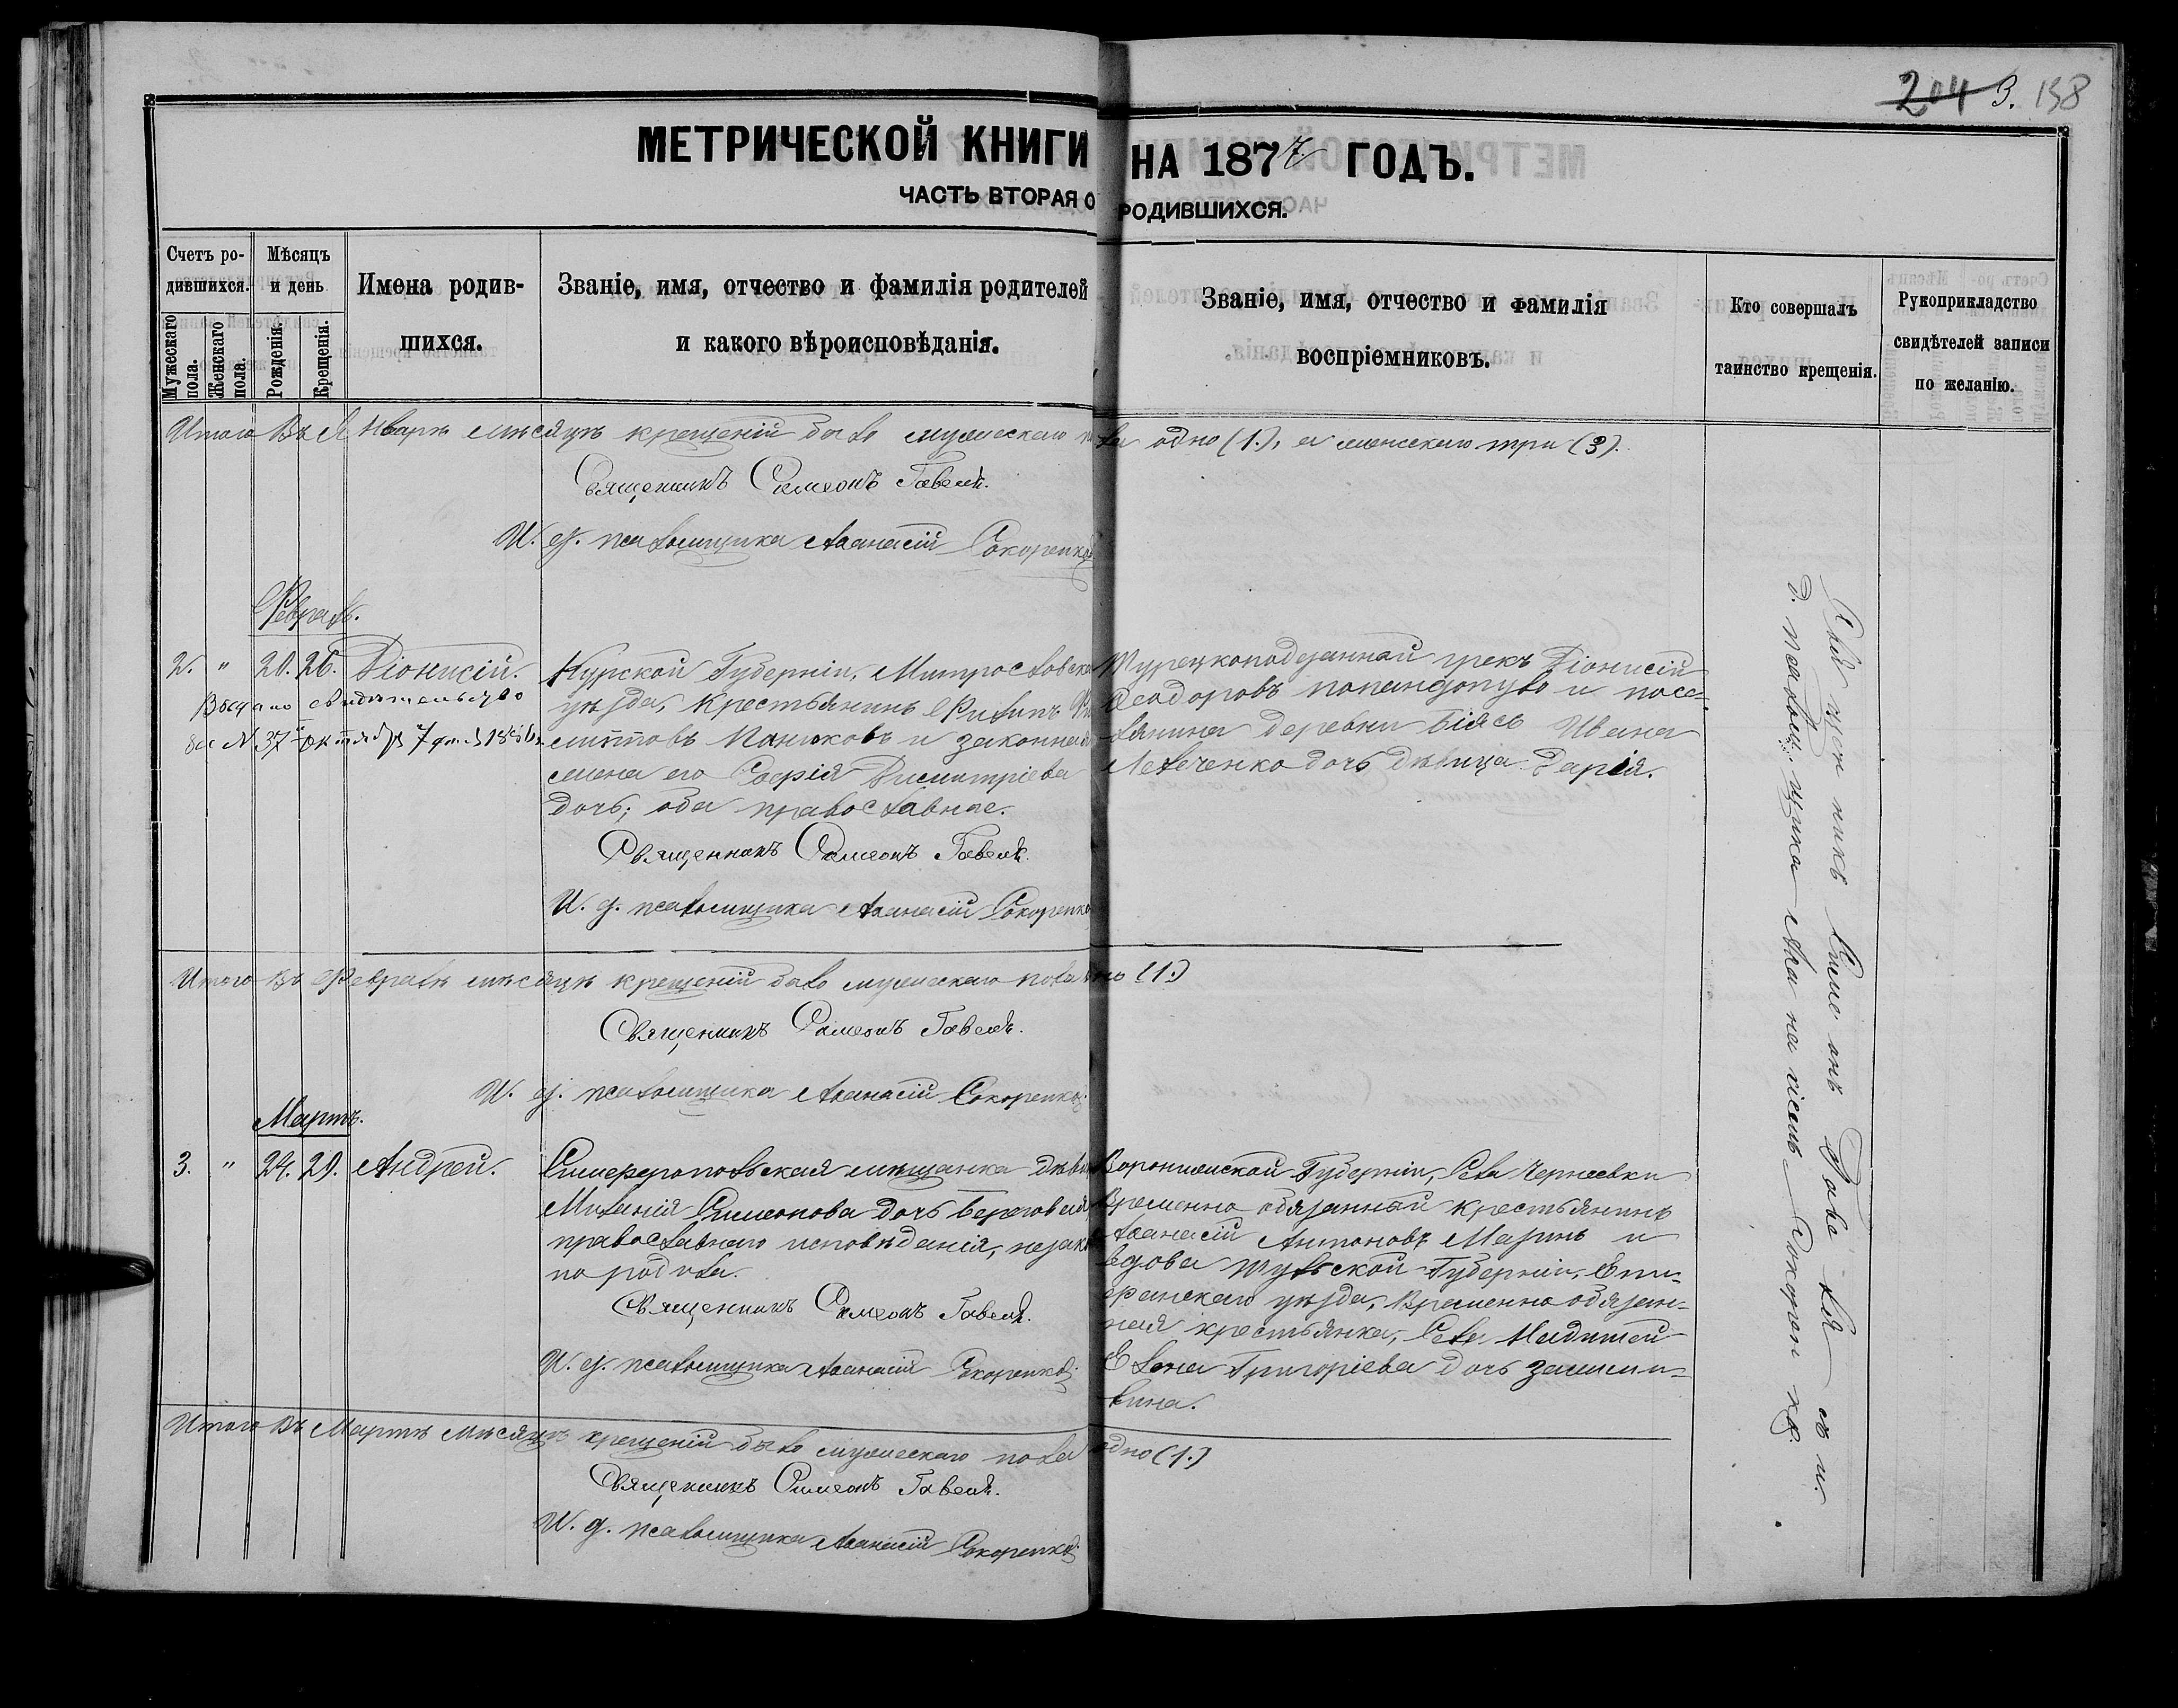 204 З. 158
МЕТРИЧЕСКОЙ КНИГИ НА 1877 ГОДЪ.
ЧАСТЬ ВТОРАЯ О РОДИВШИХСЯ.
Счетъ ро-
дившихся.
Мужескаго пола.
Женскаго пола.
Мѣсяцъ
и день
Рожденія.
Крещенія.
Имена родив-
шихся.
Званіе, имя, отчество и фамилія родителей
и какого вѣроисповѣданія.
Званіе, имя, отчество и фамилія
воспріемниковъ.
Кто совершалъ
таинство крещенія.
Рукоприкладство
свидѣтелей записи
по желанію.
Итого въ Январѣ мѣсяцѣ крещеній было мужескаго пола одно (1.), а женскаго три (3).
Священникъ Симеонъ
И. д. псаломщика Аѳанасій
Февраль.
2. " 20. 26. Діонисій.
Выдано свидѣтельство
за № 37 Октября 7 дня
Курской Губерніи, Митрославска
уѣзда, Крестьянинъ Филипъ
и законная
жена его Софія Димитріева
дочь; оба православные.
Священникъ Симеонъ
И. д. псаломщика Аѳанасій
Турецкоподданный грекъ Діонисій
Ѳеодоровъ попандопуло и посе-
лянина деревни Біясъ Ивана
Левченко дочь дѣвица Дарія.
Итого въ Февралѣ мѣсяцѣ крещеній было мужескаго пола одно (1.)
Священникъ Симеонъ
И. д. псаломщика Аѳанасій
Мартъ.
3. " 24. 29. Андрей.
Симферопольская мѣщанка дѣви
Миланія Симеонова дочь Береговая
православнаго исповѣданія, незако
но родила.
Священникъ Симеонъ
И. д. псаломщика Аѳанасій
Воронежской Губерніи, Села Чернеевки
Временно обязанный крестьянинъ
Аѳанасій Антоновъ Маринъ и
вдова Тульской Губерніи, Епи-
фанскаго уѣзда, Временно обязан-
ная крестьянка, Села
Елена Григоріева дочь
Итого въ Мартѣ мѣсяцѣ крещеній было мужескаго пола одно (1.)
Священникъ Симеонъ
И. д. псаломщика Аѳанасій
Священникъ Симеонъ съ и.
д. псаломщика Аѳанасіемъ